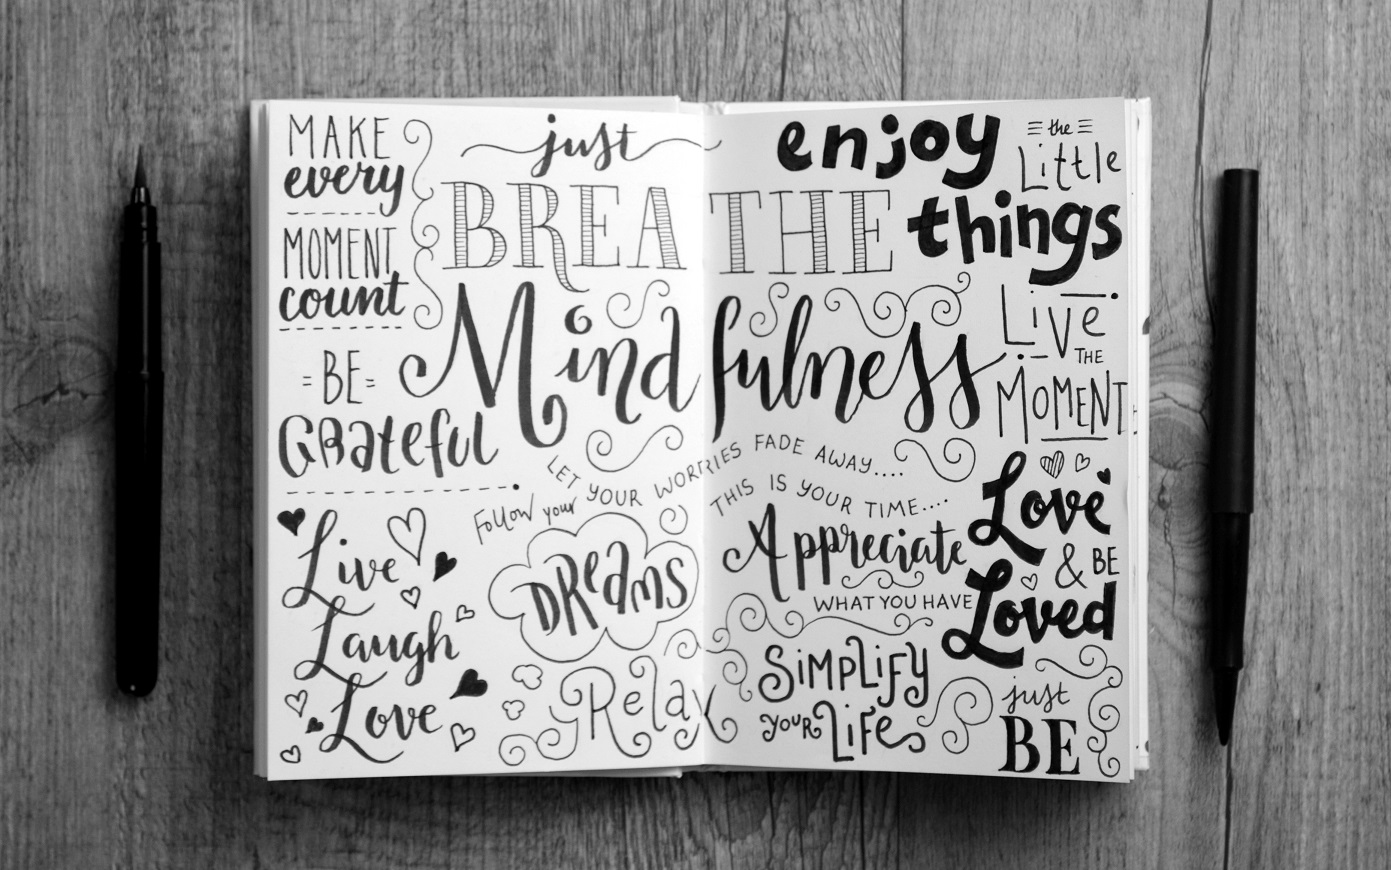 MAKE
every
MOMENT
count
= BE =
Grateful
Live
Laugh
Love
just
BREATHE
Mindfulness
LET YOUR WORRIES FADE AWAY....
THIS IS YOUR TIME....
Follow your
DReams
Relax
enjoy
the
Little
things
Live
THE
MOMENT
Appreciate
WHAT YOU HAVE
Love
& BE
Loved
SiMPLiFY
YOUR LiFe
just
BE